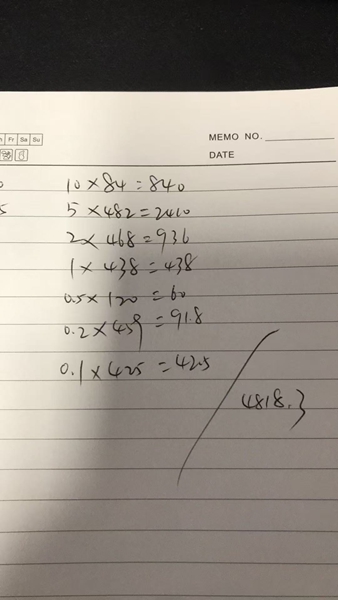 Fr Sa Su
MEMO NO.
DATE
10 × 84 = 840
5 × 482 = 2410
2 × 468 = 936
1 × 438 = 438
0.5 × 120 = 60
0.2 × 459 = 91.8
0.1 × 425 = 42.5
4818.3